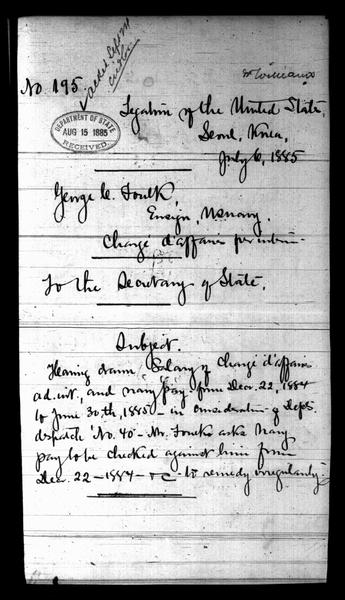 No. 195.
DEPARTMENT OF STATE
AUG 15 1885
RECEIVED
Legation of the United States,
Seoul, Korea,
July 6, 1885
George C. Foulk,
Ensign, U.S. Navy.
Chargé d'affaires
To the Secretary of State.
Subject.
Having drawn Salary of Chargé d'affaires
ad. int., and navy pay from Dec. 22, 1884
to June 30th, 1885 - in consideration of Dept's
dispatch No. 40 - Mr. Foulk asks Navy
pay to be checked against him from
Dec. 22 - 1884 - to remedy irregularity -